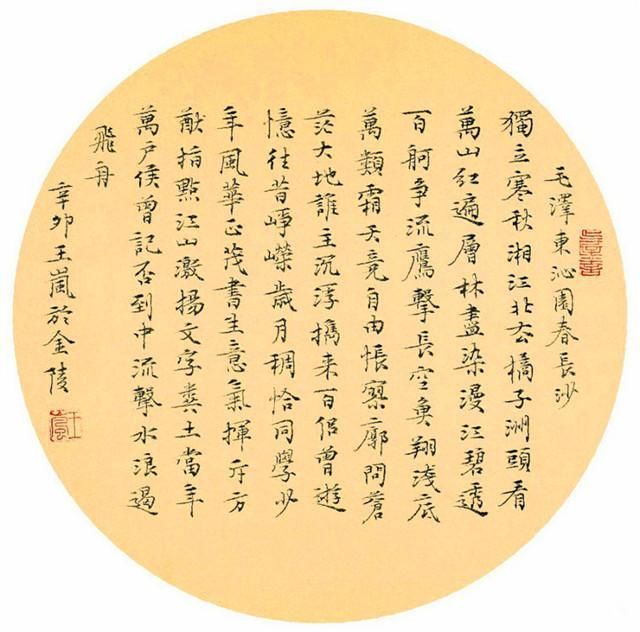 毛澤東沁園春長沙
獨立寒秋湘江北去橘子洲頭看
萬山紅遍層林盡染漫江碧透
百舸爭流鷹擊長空魚翔淺底
萬類霜天競自由悵寥廓問蒼
茫大地誰主沉浮攜來百侶曾遊
憶往昔崢嶸歲月稠恰同學少
年風華正茂書生意氣揮斥方
猷指點江山激揚文字糞土當年
萬戶侯曾記否到中流擊水浪遏
飛舟
辛卯王嵐於金陵
王嵐